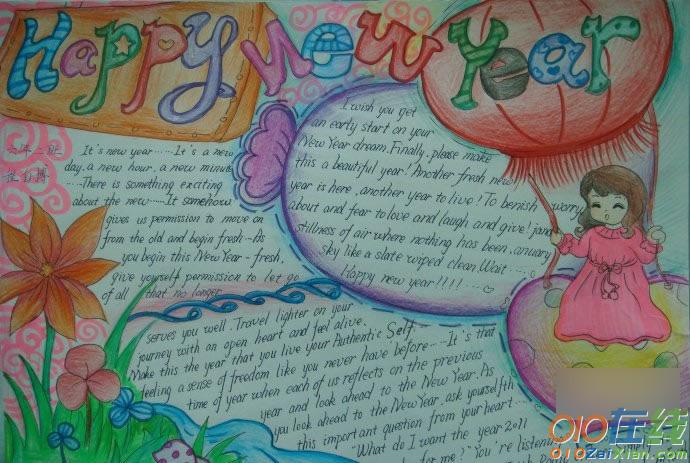 Happy New Year
六年二班
It's new year.....It's a new
day, a new hour, a new minute
.....There is something exciting
about the new.....It somehow
gives us permission to move on
from the old and begin fresh...As
you begin this New Year - fresh,
give yourself permission to let go
of all that no longer
serves you well. Travel lighter on your
journey with an open heart and feel alive.
Make this the year that you live your Authentic Self.
feeling a sense of freedom like you never have before.....It's that
time of year when each of us reflects on the previous
year and look ahead to the New Year. As
you look ahead to the New Year, ask yourselfth
this important question from your heart....
"What do I want the year 2011
for me?" You're listening
I wish you get
an early start on your
New Year dream. Finally, please make
this a beautiful year! Another fresh new
year is here, another year to live! To benish worry
about and fear to love and laugh and give! janu
stillness of air where nothing has been, anuary
sky like a slate wiped clean. Wait....
Happy new year!!!!...
010在线
010ZaiXian.com